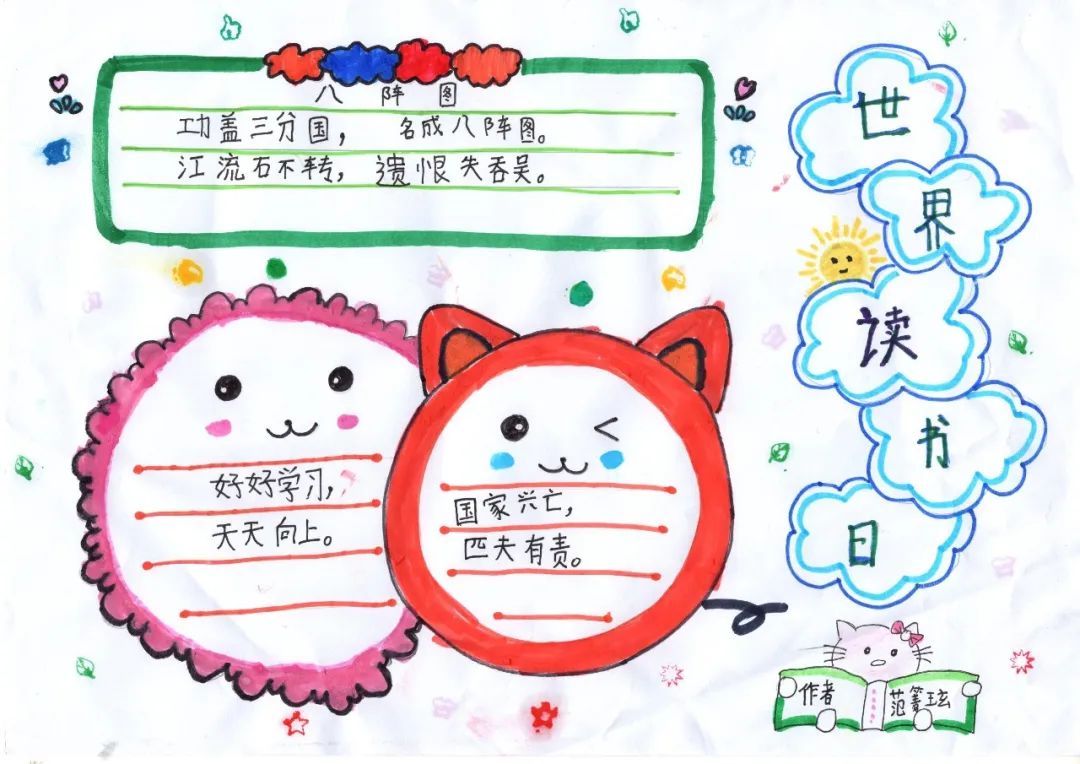 八阵图
功盖三分国， 名成八阵图。
江流石不转， 遗恨失吞吴。
世
界
读
书
日
好好学习，
天天向上。
国家兴亡，
匹夫有责。
作者